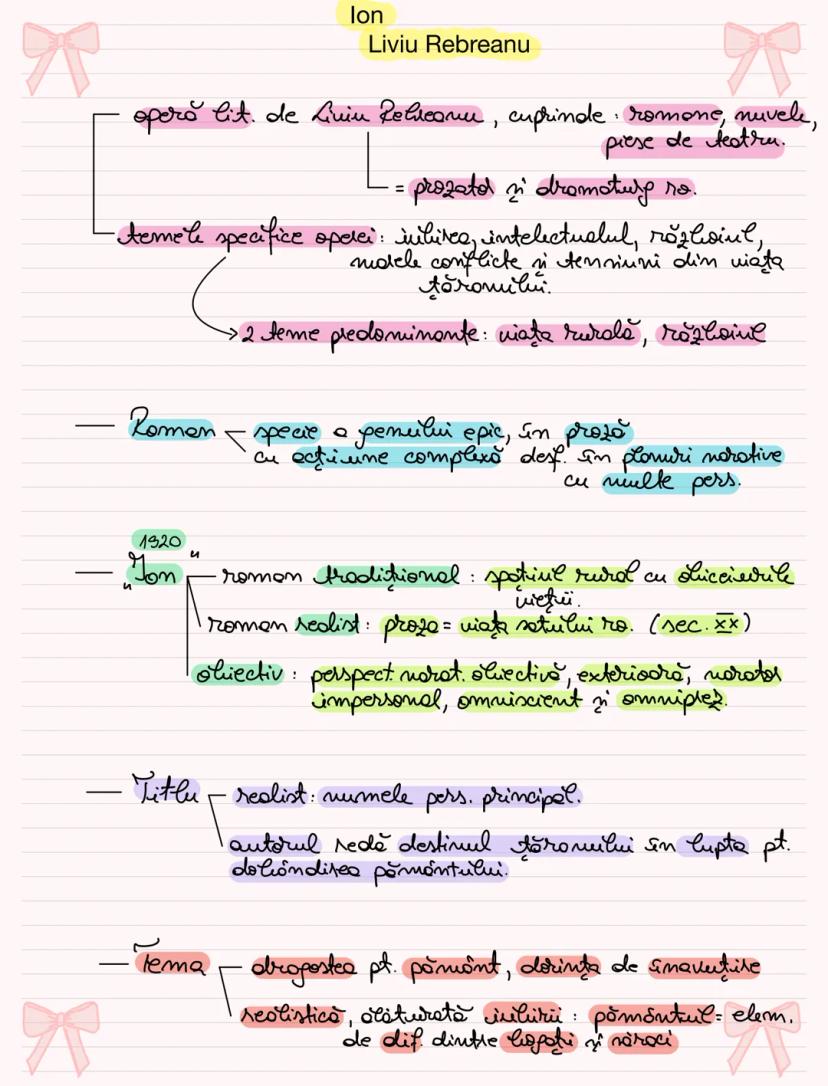 Ion
Liviu Rebreanu
operă lit. de Liviu Rebreanu, cuprinde: romane, nuvele,
piese de teatru.
= prozator și dramaturg ro.
temele specifice operei: iubirea, intelectualul, războiul,
marele conflicte și tensiuni din viața
țăranului.
2 teme predominante: viața rurală, războiul
— Roman specie a genului epic, în proză
cu acțiune complexă desf. în planuri narative
cu multe pers.
1920
— „Ion" roman tradițional: spațiul rural cu obiceiurile
vieții.
roman realist: proza = viața satului ro. (sec. XX)
obiectiv: perspect. narat. obiectivă, exterioară, narator
impersonal, omniscient și omniprez.
— Titlu realist: numele pers. principal.
autorul redă destinul țăranului în lupta pt.
dobândirea pământului.
— Tema dragostea pt. pământ, dorința de înavuțire
realistică, alăturată iubirii: pământul = elem.
de dif. dintre bogați și săraci